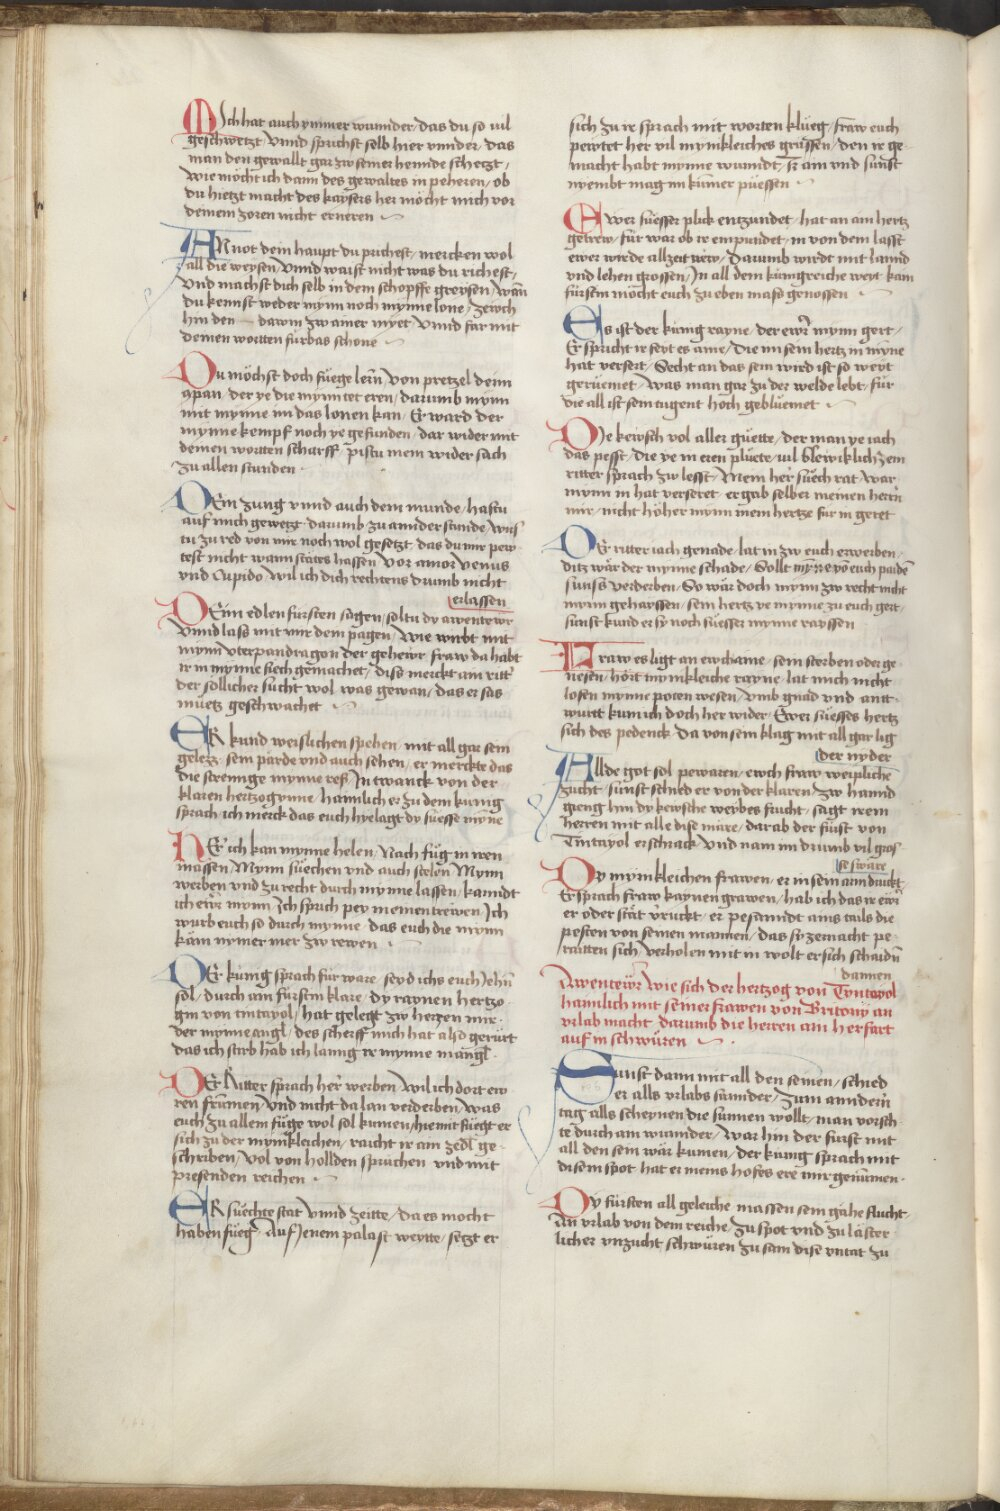 Mich hat auch ymmer wunnder / das du so vil
geschwetzt / Vnnd sprichst selb hier vnnder / das
man den gewallt gar zw seiner hennde schetzt /
Wie möcht ich dann des gewaltes in peheren / ob
du hietzt macht des kaysers her möcht mich vor
deinem zoren nicht erneren
An not dein haupt du prichest / mercken wol
all die weysen / Vnnd waist nicht was du richest /
Vnd machst dich selb in dem schopffe greysen / Wan̄
du kennst weder mynn noch mynne lone / Zewch
hin den dawm zw ainer myet / Vnnd far mit
deinen wortten fürbas schone
Du möchst doch füege lern̄ / Von pretzel deim
gspan / der ye die mynn tet eren / darumb mynn
mit mynne im das lonen kan / Er ward der
mynne kempf noch ye gefunden / dar wider mit
deinen wortten scharff pistu mein wider sach
zu allen stunden
Dein zung vnnd auch dem munde / hastu
auf mich gewetzt / darumb zu annder stunde / Wais
tu zu red von mir noch wol gesetzt / das du mir pew
test nicht wann stätes hassen / Vor amor Venus
vnd Cupido / wil ich dich rechtens drumb nicht
erlassen
Deim edlen fursten sagen / soltu dy awentewr
Vnnd lass mit mir dem pagen / Wie wirbt mit
mynn vterpandragon der gehewr / fraw da habt
ir in mynne siech gemachet / diss merckt am ritt'
der sollicher sucht wol was gewan / das er sas
müetz geschwachet
Er kund weislichen spehen / mit all gar sein
geletzz / sein pärde vnd auch sehen / er merckte das
die strennge mynne ress / In twanck von der
klaren hertzogynne / haimlich er zu dem kunig
sprach / ich merck das euch hye lagt dy süesse myne
Her ich kan mynne helen / Nach füg in iren
massen / Mynn süechen vnd auch stelen / Mynn
werben vnd zu recht durch mynne lassen / kanndt
ich ewr mynn / Ich sprich pey meinen trewen / Ich
wurb euch so durch mynne / das euch die mynn
käm nymer mer zw rewen
Der künig sprach für ware / seyd ichs euch Jehn̄
sol / durch ain fürstin klare / dy raynen hertzo
gin von tintayol / hat gelegt zw hertzen mir
der mynne angl / des scherff mich hat also gerürt
das ich stirb hab ich lanng ir mynne mangl
Der Ritter sprach her werben / Wil ich dort ew
ren frūmen / Vnd nicht da lan verderben / Was
euch zu allem füge wol sol kumen / hiemit füegt er
sich zu der mynikleichen / raicht ir ain zedl ge
schriben / Vol von hollden sprüchen vnd mit
presenden reichen
Er süechte stat Vnnd zeitte / da es mocht
haben füeg / Auf Jenem palast weytte / setzt er
sich zu ir sprach mit worten klüeg / fraw euch
pewtet her vil mynikleiches grüssen / den ir ge
macht habt mynne wunndt / Ir ain vnd sunst
nyembt mag im kümer püessen
Ewer süesser plick entzundet / hat an am hertz
getrew / für war ob ir empundet / in von dem lasst
ewer wirde allzeit new / Darumb wirdt mit lannd
vnd lehen grossen / In all dem künigreiche weyt kain
fürstin möcht euch zu eben mass genossen
Es ist der künig rayne / der ewr̄ mynn gert /
Er spricht ir seyt es aine / die im sein hertz in mȳne
hat versert / Secht an das sein wird ist so weyt
gerüemet / Was man gar zu der welde lebt / für
die all ist sein tugent hoch geblüemet
Die kewsch vol aller güette / der man ye iach
das pesst / die ye in eren plüete / vil bleiwiklich zem
ritter sprach zw lesst / Mein her süech rat war
mynn in hat verseret / er gab selber meinen herrn
mir / nicht höher mynn mein hertze für in geret
Der ritter iach genade / lat in zw euch erwerben /
ditz wär der mynne schade / Sollt mynne võ euch paide
sunss verderben / So wär doch mynn zw recht nicht
mynn gehayssen / sein hertz ye mynne zu euch gert /
sunst kund er sy noch süesser mynne rayssen
Fraw es ligt an ew aine / sein sterben oder ge
nesen / hört mynikleiche rayne / lat mich nicht
losen mynne poten wesen / Vmb gnad vnd antt
wurtt kum ich doch her wider / Ewer süesses hertz
sich des pedenck / da von sein klag mit all gar lig
der nyder
Allde got sol pewaren / ewch fraw weiplicheň
zucht / sunst schied er von der klaren / Zw hannd
gieng hin dy kewsche weybes frucht / sagt irem
herren mit alle dise märe / dar ab der fürst von
Tintayol erschrack / Vnd nam im drumb vil gros
se sware
Dy mynikleichen frawen / er in sein arm druckt
Er sprach fraw kaynen grawen / hab ich das ir ewr̄
er oder stät v'ruckt / er pesanndt ains tails die
pesten von seinen mannen / das sy zemacht pe
raitten sich / Verholen mit in wolt er sich schaidn̄
dannen
Awentewr̄ wie sich der hertzog von Tyntayol
haimlich mit seiner frawen von Britony an
vrlab macht / darumb die herren ain herfart
auf in schwüren
Sunst dann mit all den seinen / schied
er alls vrlabs sunnder / Zum anndern̄
tag alls scheynen die sunnen wollt / man vorsch
te durch ain wunnder / War hin der fürst mit
all den sein wär kumen / der künig sprach mit
disem spot hat er meins hofes ere mir genūmen
Dy fürsten all geleiche massen sein gähe flucht /
An vrlab von dem reiche / zu spot vnd zu läster
licher vnzucht / schwüren zu sam dise vntat zu